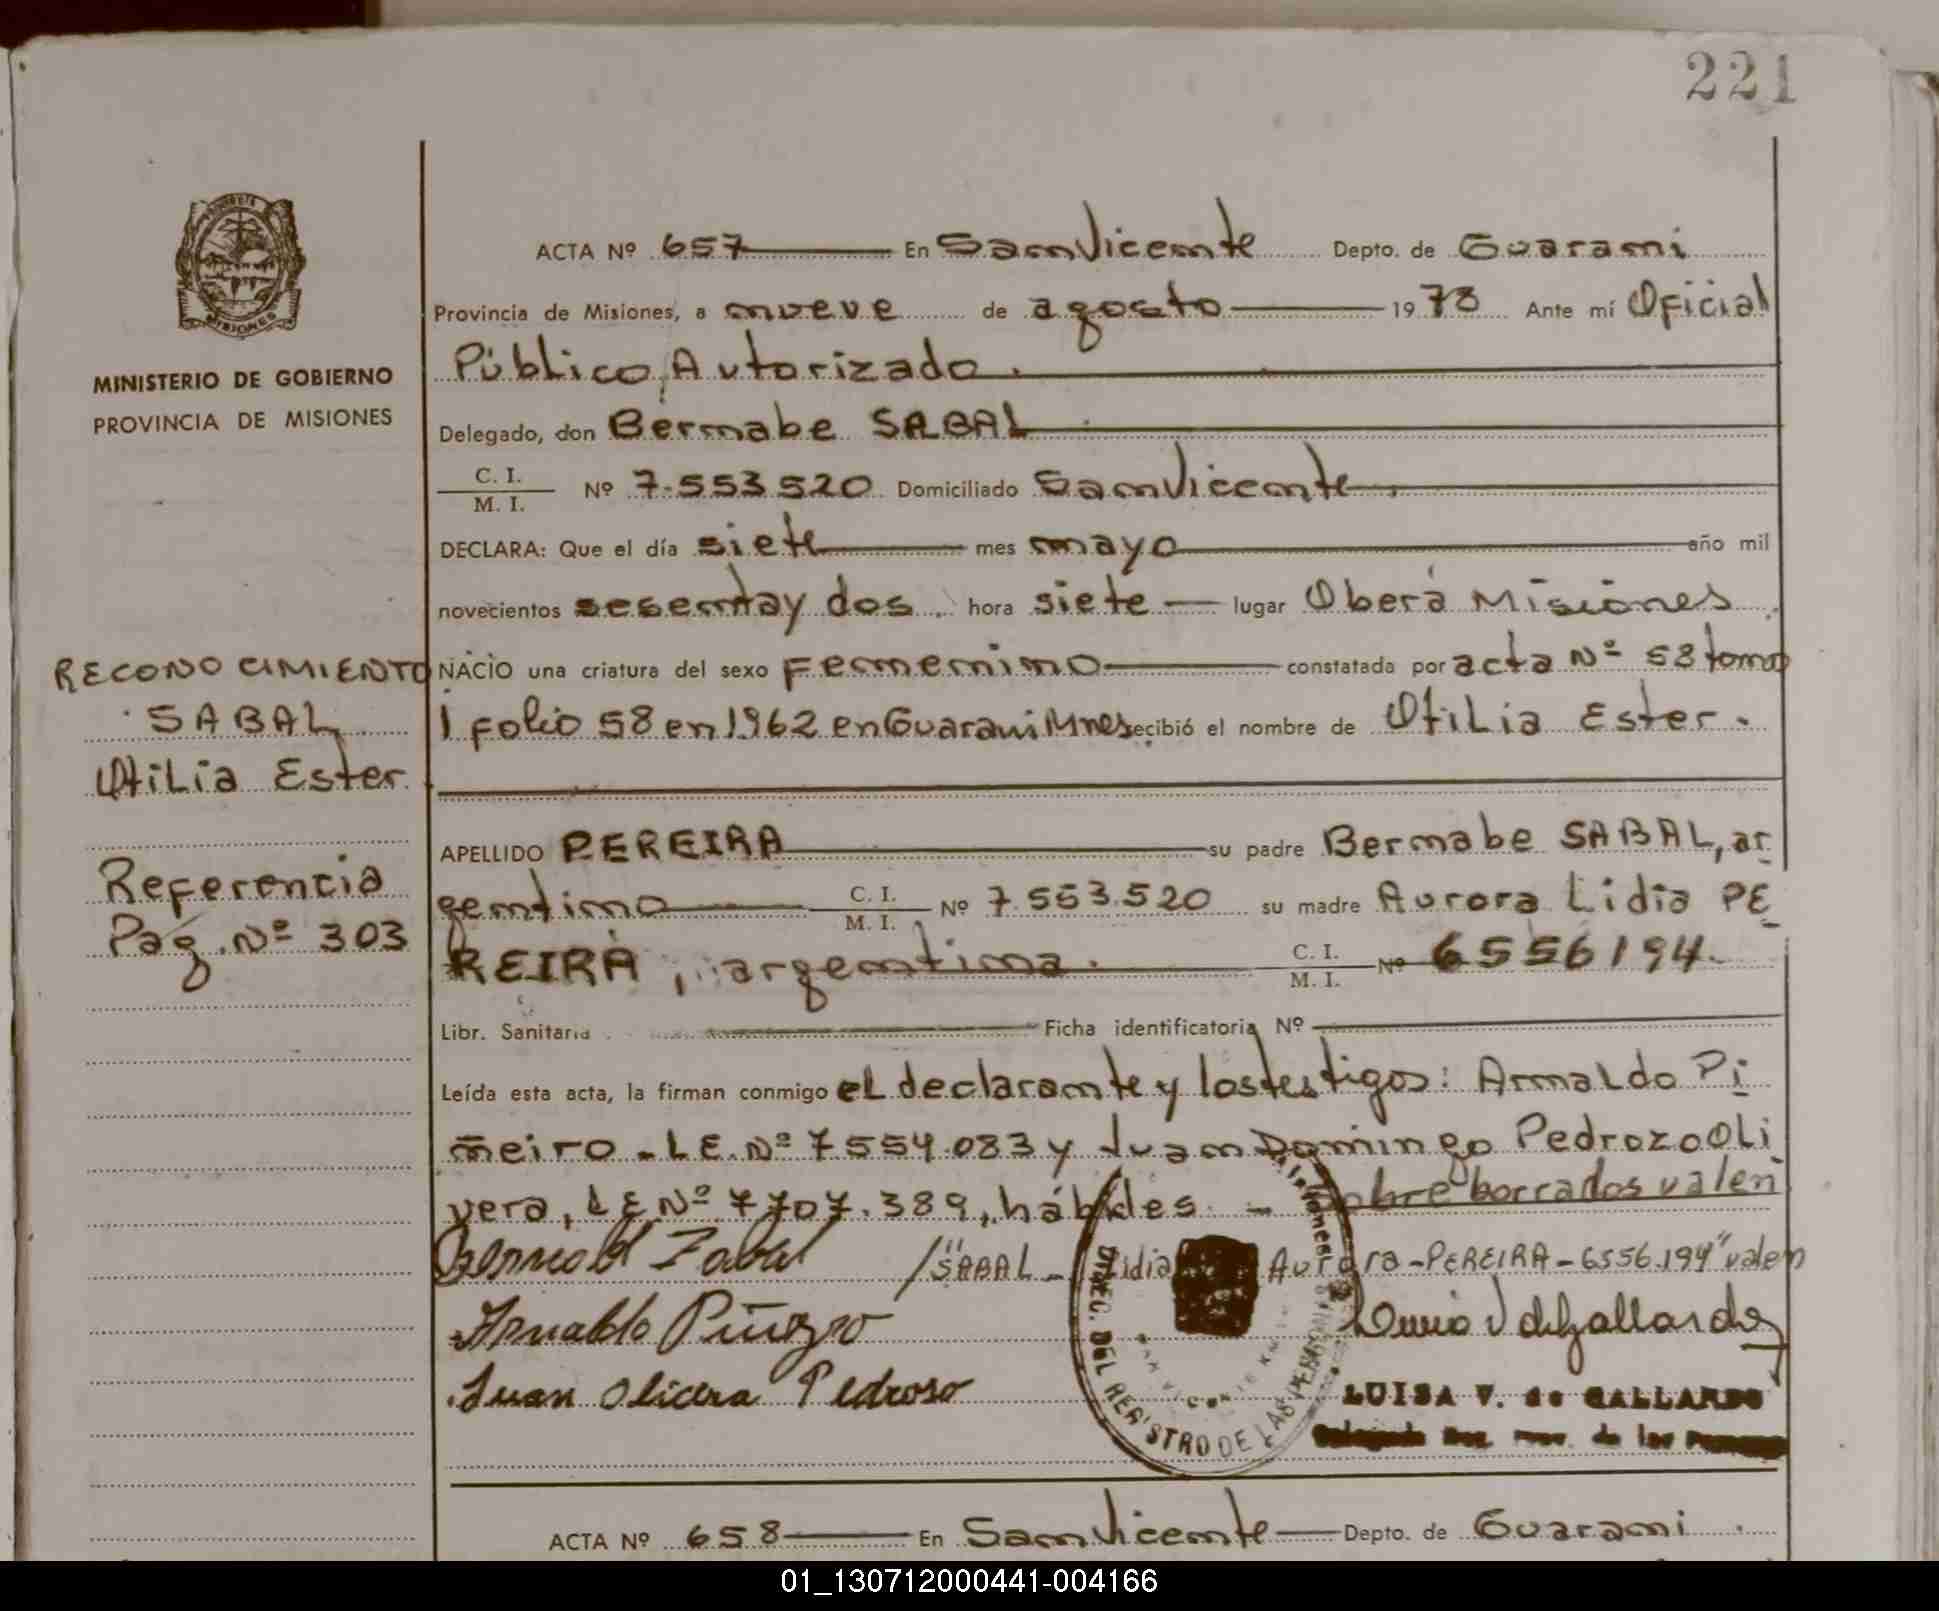 221
ACTA Nº 657 En San Vicente Depto. de Guarani
Provincia de Misiones, a nueve de agosto 1978 Ante mí Oficial
Público Autorizado.
MINISTERIO DE GOBIERNO
PROVINCIA DE MISIONES
Delegado, don Bernabe SABAL
C. I.
M. I.
Nº 7.553.520 Domiciliado San Vicente
DECLARA: Que el día siete mes mayo año mil
novecientos sesentay dos. hora siete lugar Oberá Misiones
RECONOCIMIENTO
SABAL
Otilia Ester.
Referencia
Pag. Nº 303
NACIO una criatura del sexo Femenino constatada por acta Nº 58 tomo
1 folio 58 en 1962 en Guarani Mnes recibió el nombre de Otilia Ester.
APELLIDO PEREIRA su padre Bernabe SABAL, ar
gentino C. I. M. I. Nº 7.553.520 su madre Aurora Lidia PE
REIRA, argentina. C. I. M. I. Nº 6556194.
Libr. Sanitaria Ficha identificatoria Nº
Leída esta acta, la firman conmigo el declarante y los testigos: Arnaldo Pi
ñeiro - LE. Nº 7554.083 y Juan Domingo Pedrozo Oli
vera, LE Nº 7707.389, hábiles. - Sobre borrados valen
/"SABAL - Lidia Aurora - PEREIRA - 6556.194" valen
Juan Olivera Pedroso
MISIONES
DIREC. DEL REGISTRO DE LAS PERSONAS
SAN VICENTE
LUISA V. de GALLARDO
ACTA Nº 658 En San Vicente Depto. de Guarani
01_130712000441-004166